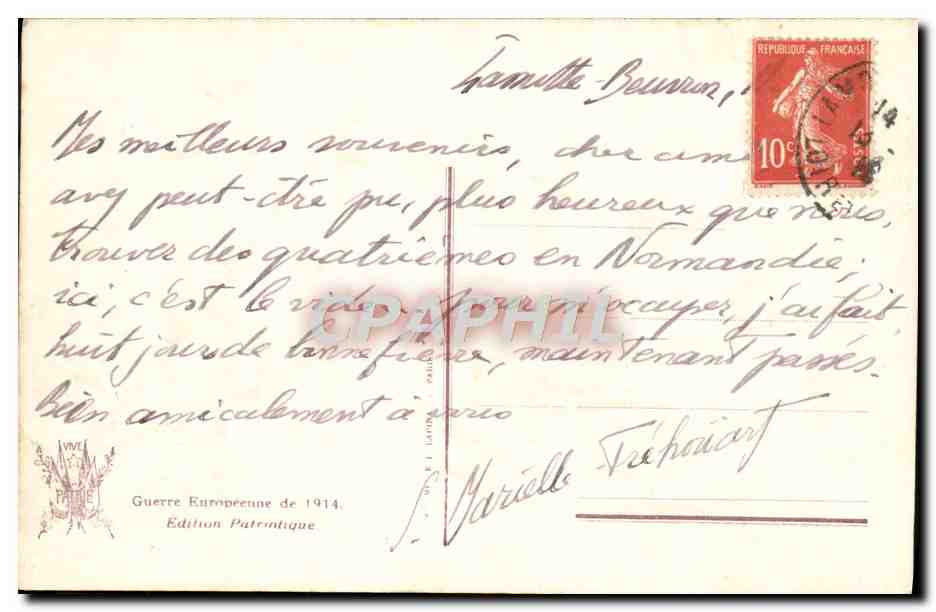 Lamotte-Beuvron,
RÉPUBLIQUE FRANÇAISE
10 c
POSTES
Mes meilleurs souvenirs, cher ami
avez peut-être pu, plus heureux que nous,
trouver des quatrièmes en Normandie;
ici, c'est le vide. pour m'occuper, j'ai fait
huit jours de bonne fièvre, maintenant passés.
Bien amicalement à vous
Tréhouart
VIVE
LA
PATRIE
Guerre Européenne de 1914.
Edition Patriotique
CPAPHIL